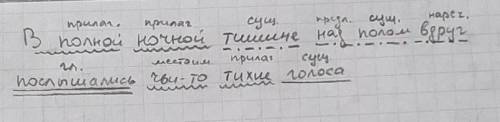 прилаг. прилаг сущ. предл. сущ. нареч.
В полной ночной тишине над полом вдруг
гл. местоим прилаг сущ
послышались чьи-то тихие голоса